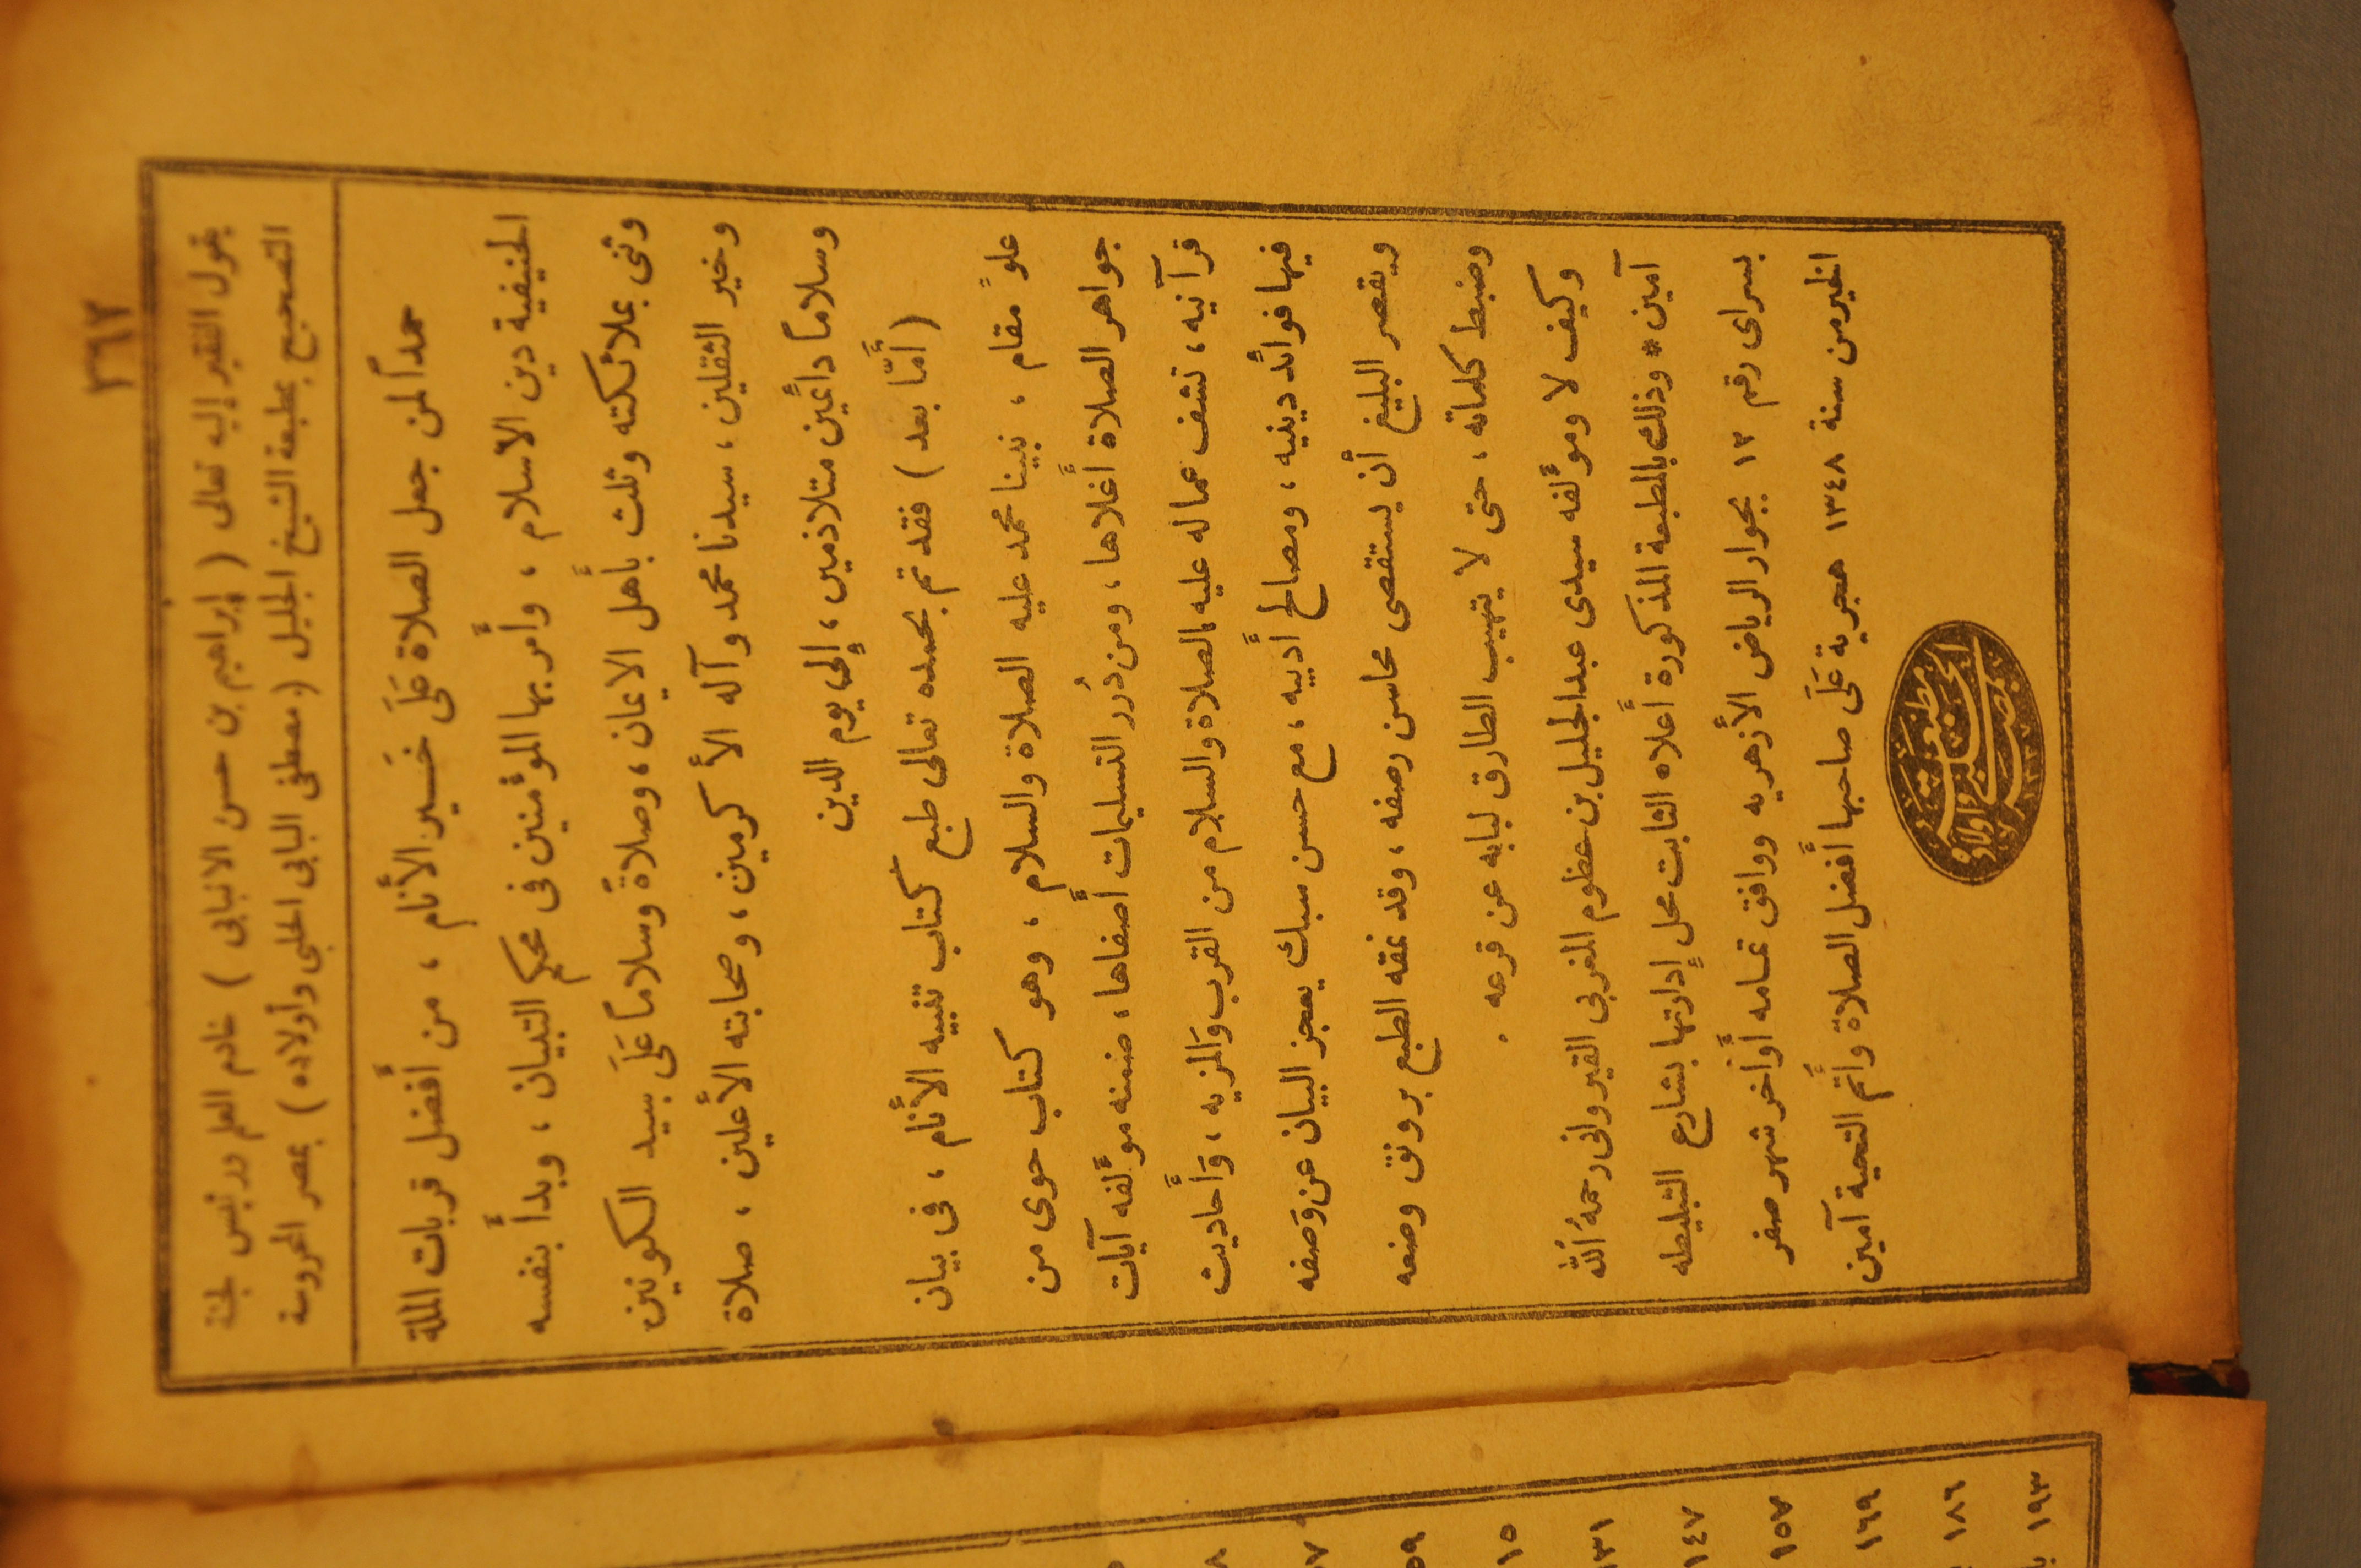 ٣٦٢
يقول الفقير إليه تعالى ( إبراهيم بن حسن الانبابى ) خادم العلم ورئيس لجنة
التصحيح بمطبعة الشيخ الجليل ( مصطفى البابى الحلبى وأولاده ) بمصر المحروسة
حمداً لمن جعل الصلاة عَلَى خَسير الأنام ، من أفضل قربات الملة
الحنيفية دين الاسلام ، وأمر بها المؤمنين فى محكم التبيان ، وبدأ بنفسه
وثنى بملائكته وثلث بأهل الايمان ، وصلاةً وسلاماً عَلَى سيد الكونين
وخير الثقلين ، سيدنا محمد وآله الأكرمين ، وصحابته الأعلين ، صلاة
وسلاماً دائمين متلازمين ، إلى يوم الدين
( أمَّا بعد ) فقد تم بحمده تعالى طبع كتاب تنبيه الأنام ، فى بيان
علوِّ مقام ، نبينا محمد عليه الصلاة والسلام ، وهو كتاب حوى من
جواهر الصلاة أغلاها ، ومن دُرر التسليمات أصفاها ، ضمنه مؤلفه آيات
قرآنيه ، تشف عما له عليه الصلاة والسلام من القرب وَالمزيه ، وَأحاديث
فيها فوائد دينيه ، ومصالح أدبيه ، مع حسن سبك يعجز البيان عن وَصفه
ويقصر البليغ أن يستقصى محاسن رصفه ، وقد نمقه الطبع برونق وضعه
وضبط كلماته ، حتى لا يتهيب الطارق لبابه عن قرعه .
وكيف لا ومؤلفه سيدى عبد الجليل بن عظوم المغربى القيروانى رحمهُ ٱللهُ
آمين * وذلك بالمطبعة المذكورة أعلاه الثابت محل إدارتها بشارع التبليطه
بسراى رقم ١٢ بجوار الرياض الأزهريه ووافق تمامه أواخر شهر صفر
الخير من سنة ١٣٤٨ هجرية عَلَى صاحبها أفضل الصلاة وأتم التحية آمين
١٤٧
١٥٧
١٦٩
١٨٦
١٩٣